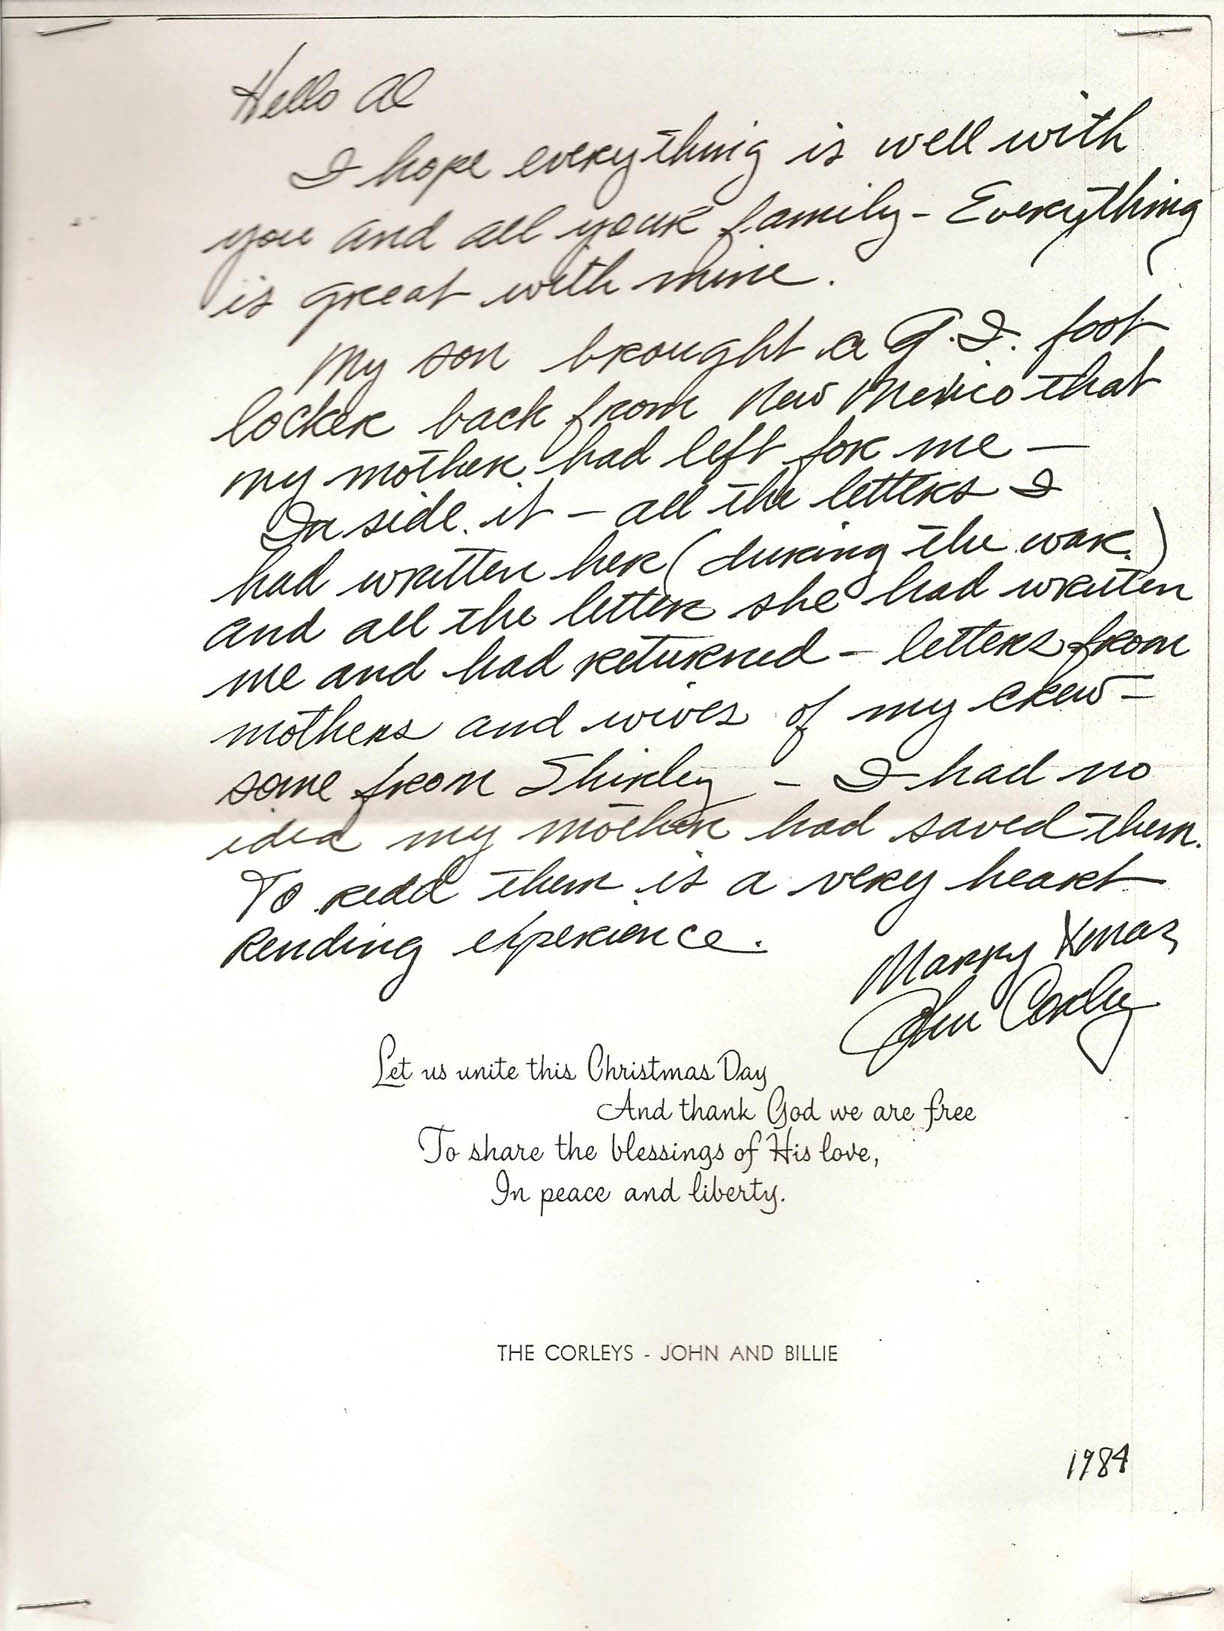 Hello Al
I hope everything is well with
you and all your family - Everything
is great with mine.
My son brought a G.I. foot
locker back from New Mexico that
my mother had left for me -
In side it - all the letters I
had written her (during the war.)
and all the letter she had written
me and had returned - letters from
mothers and wives of my crew -
some from Shirley - I had no
idea my mother had saved them.
To read them is a very heart
Rending experience.
Marry Xmas
John Corley
Let us unite this Christmas Day
And thank God we are free
To share the blessings of His love,
In peace and liberty.
THE CORLEYS - JOHN AND BILLIE
1984